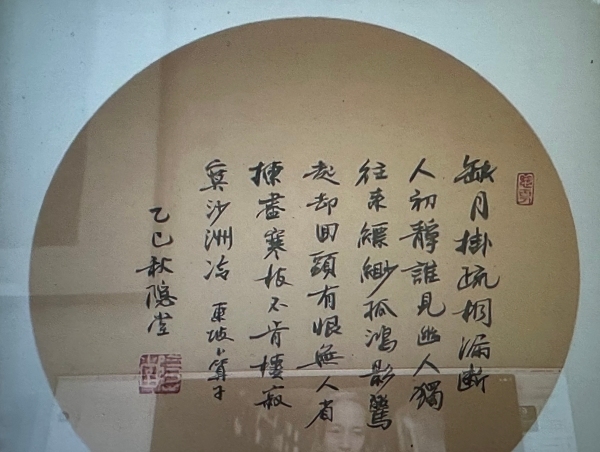 缺月掛疏桐漏斷
人初靜誰見幽人獨
往來縹緲孤鴻影驚
起却回頭有恨無人省
揀盡寒枝不肯棲寂
寞沙洲冷 東坡卜算子
乙巳秋隱堂